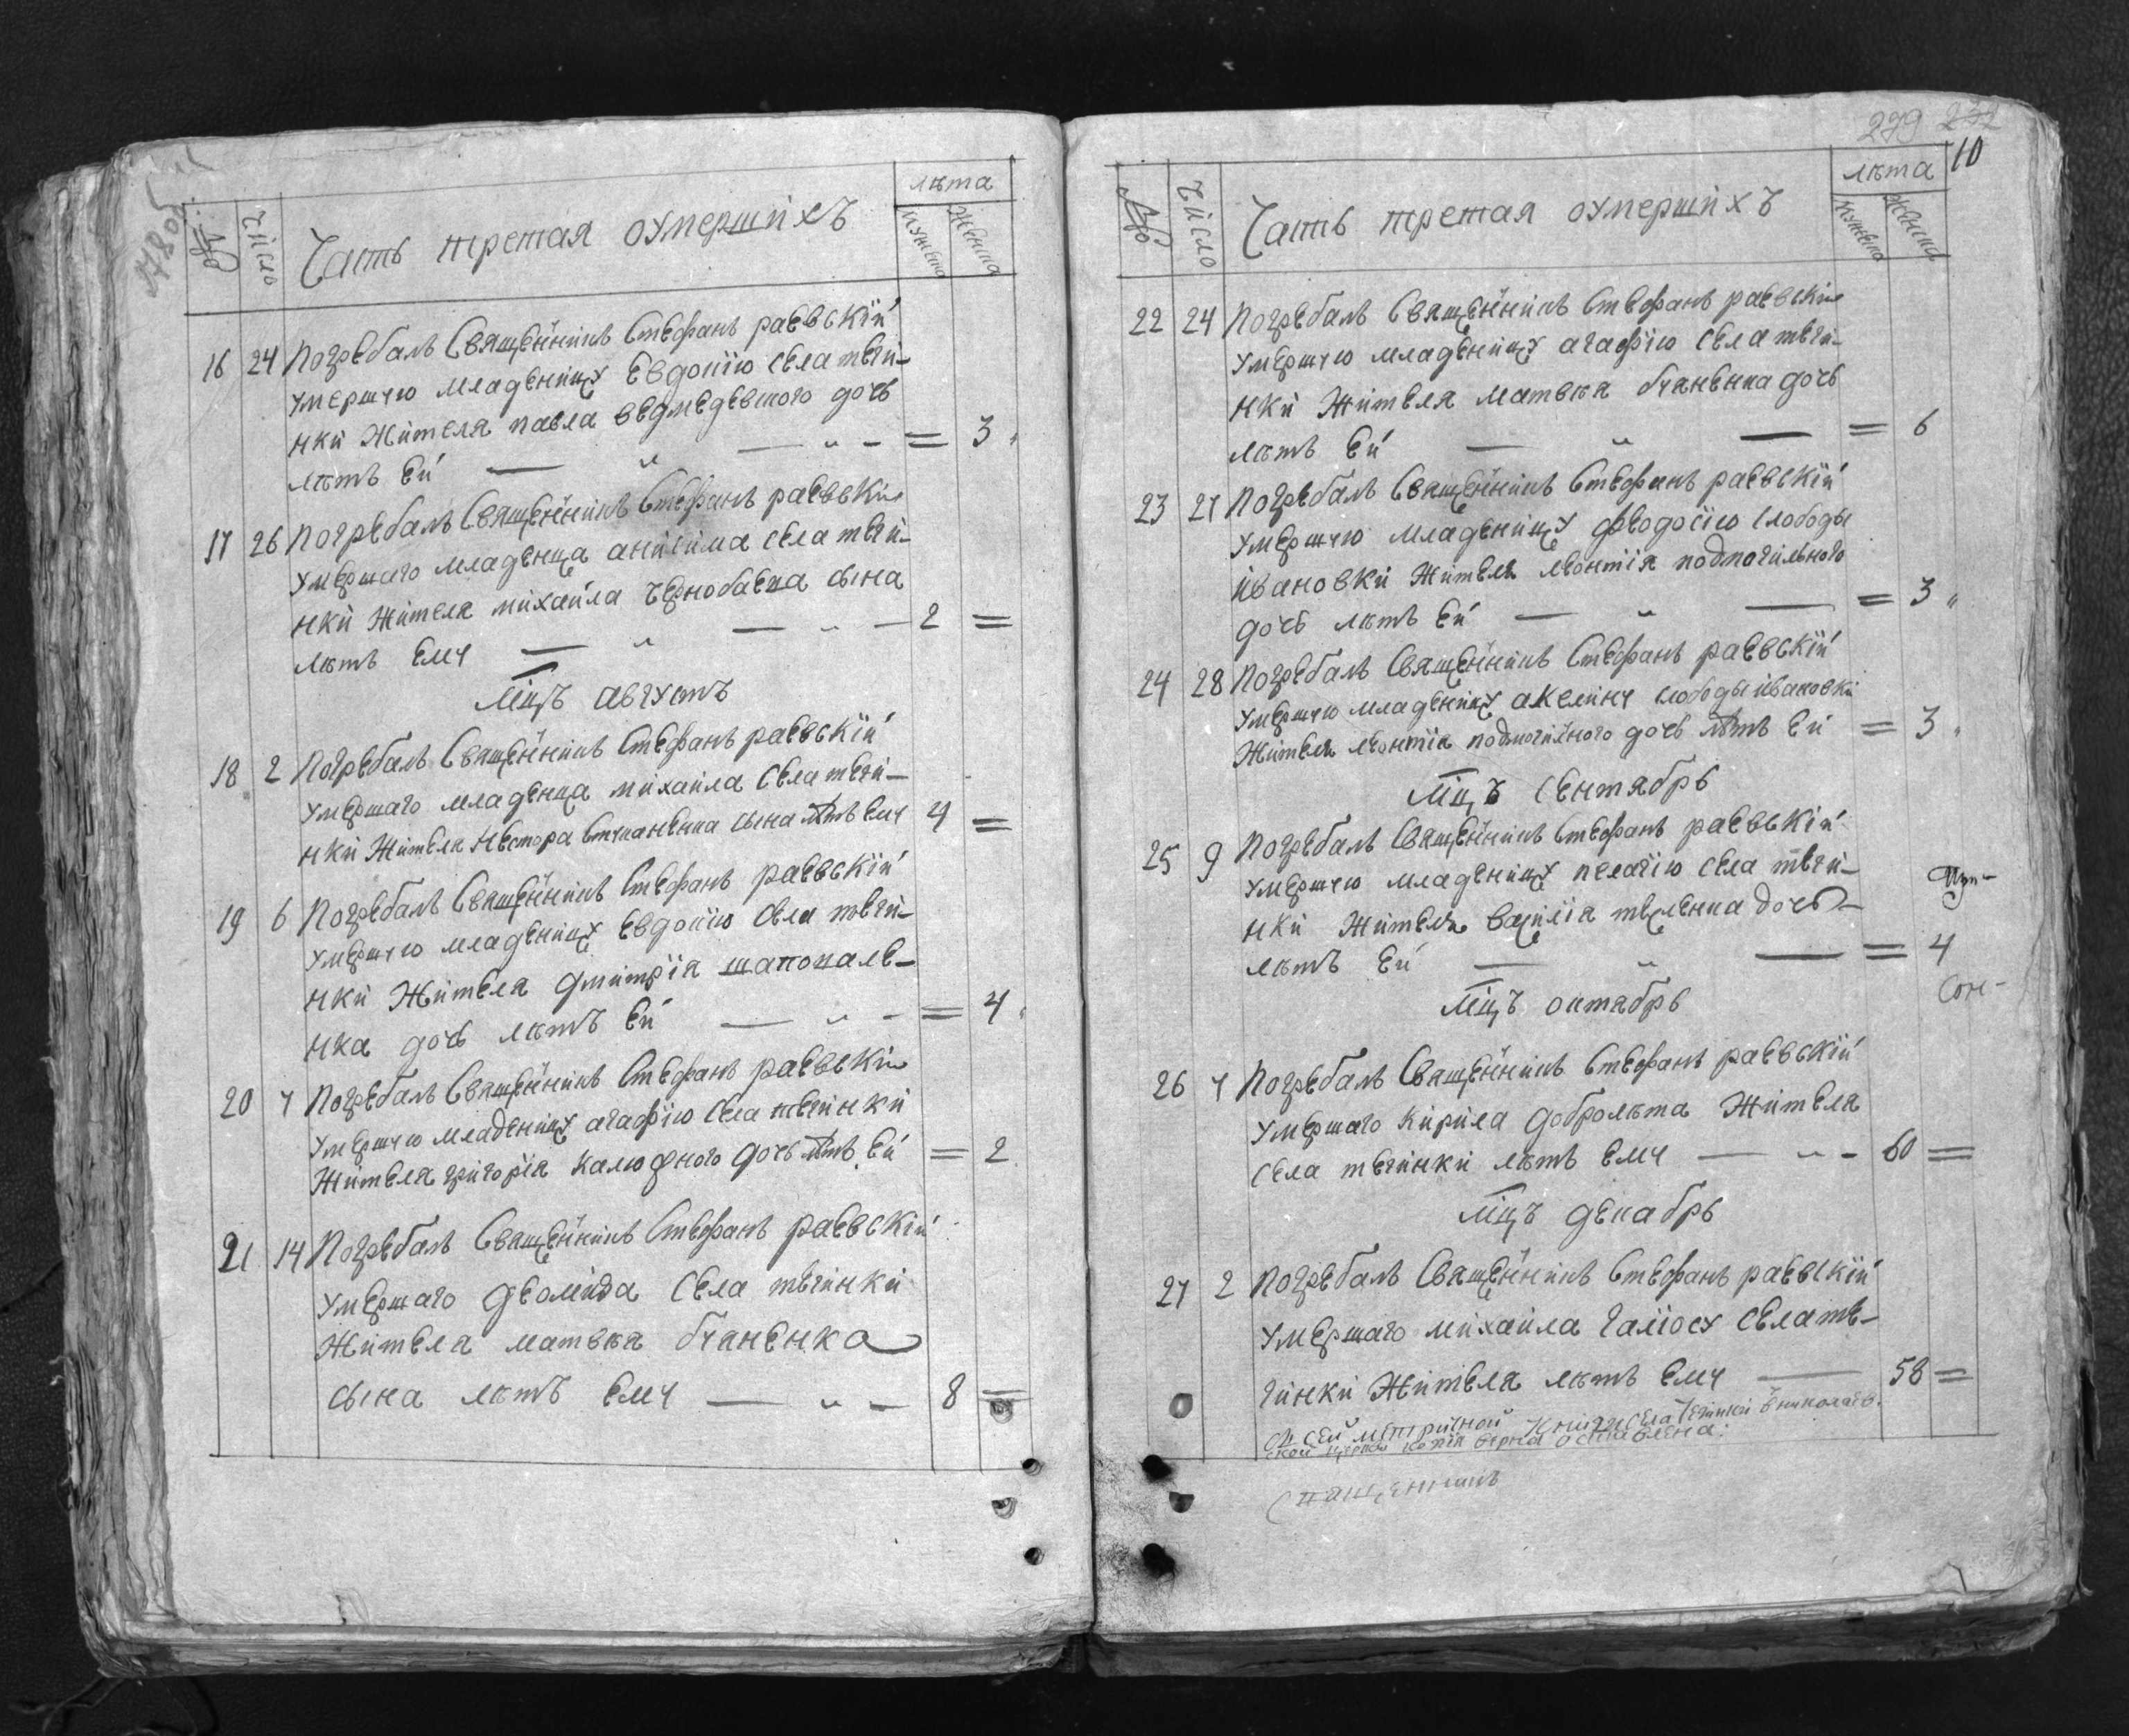 лѣта
№
Число
Часть третая оумершихъ
мужеска
женска
16 24 Погребалъ Священникъ Стефанъ раевскій
умершую младеницу Евдокію села тяги-
нки жителя павла ведмедевского дочь
лѣтъ Ей — „ — „ — = 3
17 26 Погребалъ Священникъ Стефанъ раевскій
умершаго младенца анисима села тяги-
нки жителя михайла чернобаева сына
лѣтъ Ему — „ — „ — 2 =
Мцъ августъ
18 2 Погребалъ Священникъ Стефанъ раевскій
умершаго младенца михаила села тяги-
нки жителя Нестора сына лѣтъ Ему 4 =
19 6 Погребалъ Священникъ Стефанъ раевскій
умершую младеницу Евдокію села тяги-
нки жителя дмитрія шаповале-
нка дочь лѣтъ Ей — „ — = 4
20 7 Погребалъ Священникъ Стефанъ раевскій
умершую младеницу агафію села тягинки
жителя григорія калюжного дочь лѣтъ Ей = 2
21 14 Погребалъ Священникъ Стефанъ раевскій
умершаго деомида села тягинки
жителя матвѣя буаненка
сына лѣтъ Ему — „ — 8 =
279 10
лѣта
№
Число
Часть третая оумершихъ
мужеска
женска
22 24 Погребалъ Священникъ Стефанъ раевскій
умершую младеницу агафію села тяги-
нки жителя матвѣя буаненка дочь
лѣтъ Ей — „ — = 6
23 27 Погребалъ Священникъ Стефанъ раевскій
умершую младеницу феодосію слободы
ивановки жителя леонтія подмогильного
дочь лѣтъ Ей — „ — = 3 „
24 28 Погребалъ Священникъ Стефанъ раевскій
умершую младеницу акелину слободы ивановки
жителя леонтія подмогилного дочь лѣтъ Ей = 3
Мцъ Сентябрь
25 9 Погребалъ Священникъ Стефанъ раевскій
умершую младеницу пелагію села тяги-
нки жителя василія теленка дочь
лѣтъ Ей — „ — = 4
Мцъ октябрь
26 7 Погребалъ Священникъ Стефанъ раевскій
умершаго кирила добролѣта жителя
села тягинки лѣтъ Ему — „ — 60 =
мцъ декабрь
27 2 Погребалъ Священникъ Стефанъ раевскій
умершаго михаила галіосу села тя-
гинки жителя лѣтъ Ему — 58 =
Съ сей метричной книги села тягинки николаев-
ской церкви копія верна оставлена:
Священникъ